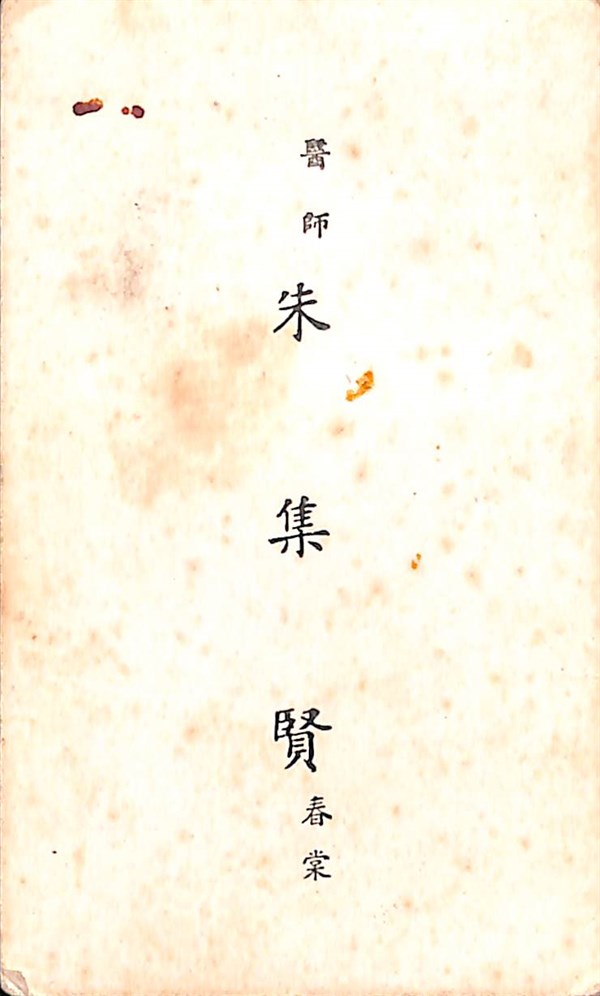 醫師
朱集賢
春棠